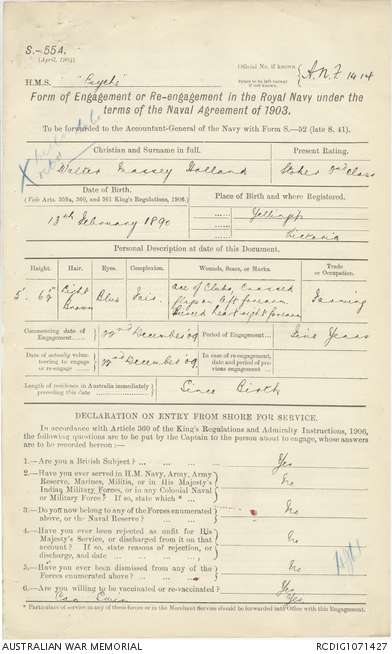 S.—55A.
(April, 1904)
Official No. if known
(Space to be left vacant if not known.)
A.N.F. 1414
H.M.S. "Psyche"
Form of Engagement or Re-engagement in the Royal Navy under the
terms of the Naval Agreement of 1903.
To be forwarded to the Accountant-General of the Navy with Form S.—52 (late S. 41).
Christian and Surname in full.
Present Rating.
Walter Massey Holland
Stoker 2nd Class
Date of Birth.
(Vide Arts. 359a, 360, and 361 King's Regulations, 1906.)
Place of Birth and where Registered.
13th February 1890
Victoria
Personal Description at date of this Document.
Height.
Hair.
Eyes.
Complexion.
Wounds, Scars, or Marks.
Trade or Occupation.
Light Brown
Blue
Fair
Ace of Clubs, Crossed
flags on left forearm.
heart right forearm
Farming
Commencing date of Engagement
22nd December '09
Period of Engagement
Five Years
Date of actually volunteering to engage or re-engage
22nd December '09
In case of re-engagement, date and period of previous engagement
Length of residence in Australia immediately preceding this date
Since Birth
DECLARATION ON ENTRY FROM SHORE FOR SERVICE.
In accordance with Article 360 of the King's Regulations and Admiralty Instructions, 1906,
the following questions are to be put by the Captain to the person about to engage, whose answers
are to be recorded hereon :—
1.—Are you a British Subject?
Yes
2.—Have you ever served in H.M. Navy, Army, Army
Reserve, Marines, Militia, or in His Majesty's
Indian Military Forces, or in any Colonial Naval
or Military Force? If so, state which *
No
3.—Do you now belong to any of the Forces enumerated
above, or the Naval Reserve?
No
4.—Have you ever been rejected as unfit for His
Majesty's Service, or discharged from it on that
account? If so, state reasons of rejection, or
discharge, and date
No
5.—Have you ever been dismissed from any of the
Forces enumerated above?
No
6.—Are you willing to be vaccinated or re-vaccinated?
Yes
Can Swim
Yes
* Particulars of service in any of these forces or in the Merchant Service should be forwarded into Office with this Engagement.
AUSTRALIAN WAR MEMORIAL
RCDIG1071427